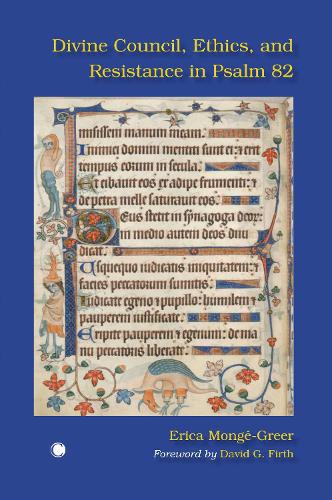 Divine Council, Ethics, and
Resistance in Psalm 82
misissem manum meam.
Inimici domini mentiti sunt ei: ⁊ erit
tempus eorum in secula.
Et cibauit eos ex adipe frumenti: ⁊
de petra melle saturauit eos.
Deus stetit in synagoga deor:
in medio autem deos diiu
dicat.
Usquequo iudicatis iniquitatem: ⁊
facies peccatorum sumitis.
Iudicate egeno ⁊ pupillo: humilem ⁊
pauperem iustificate.
Eripite pauperem: ⁊ egenum de ma
nu peccatoris liberate.
Erica Mongé-Greer
Foreword by David G. Firth